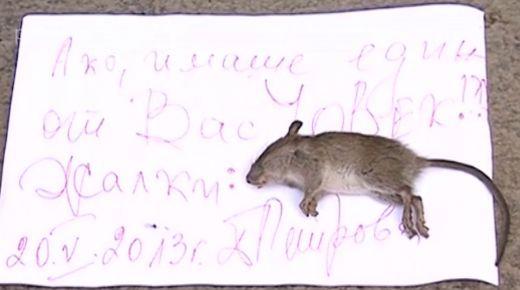 Ако, имаше един
от Вас ЧОВЕК!!!
Жалки:
20.V.2013г.